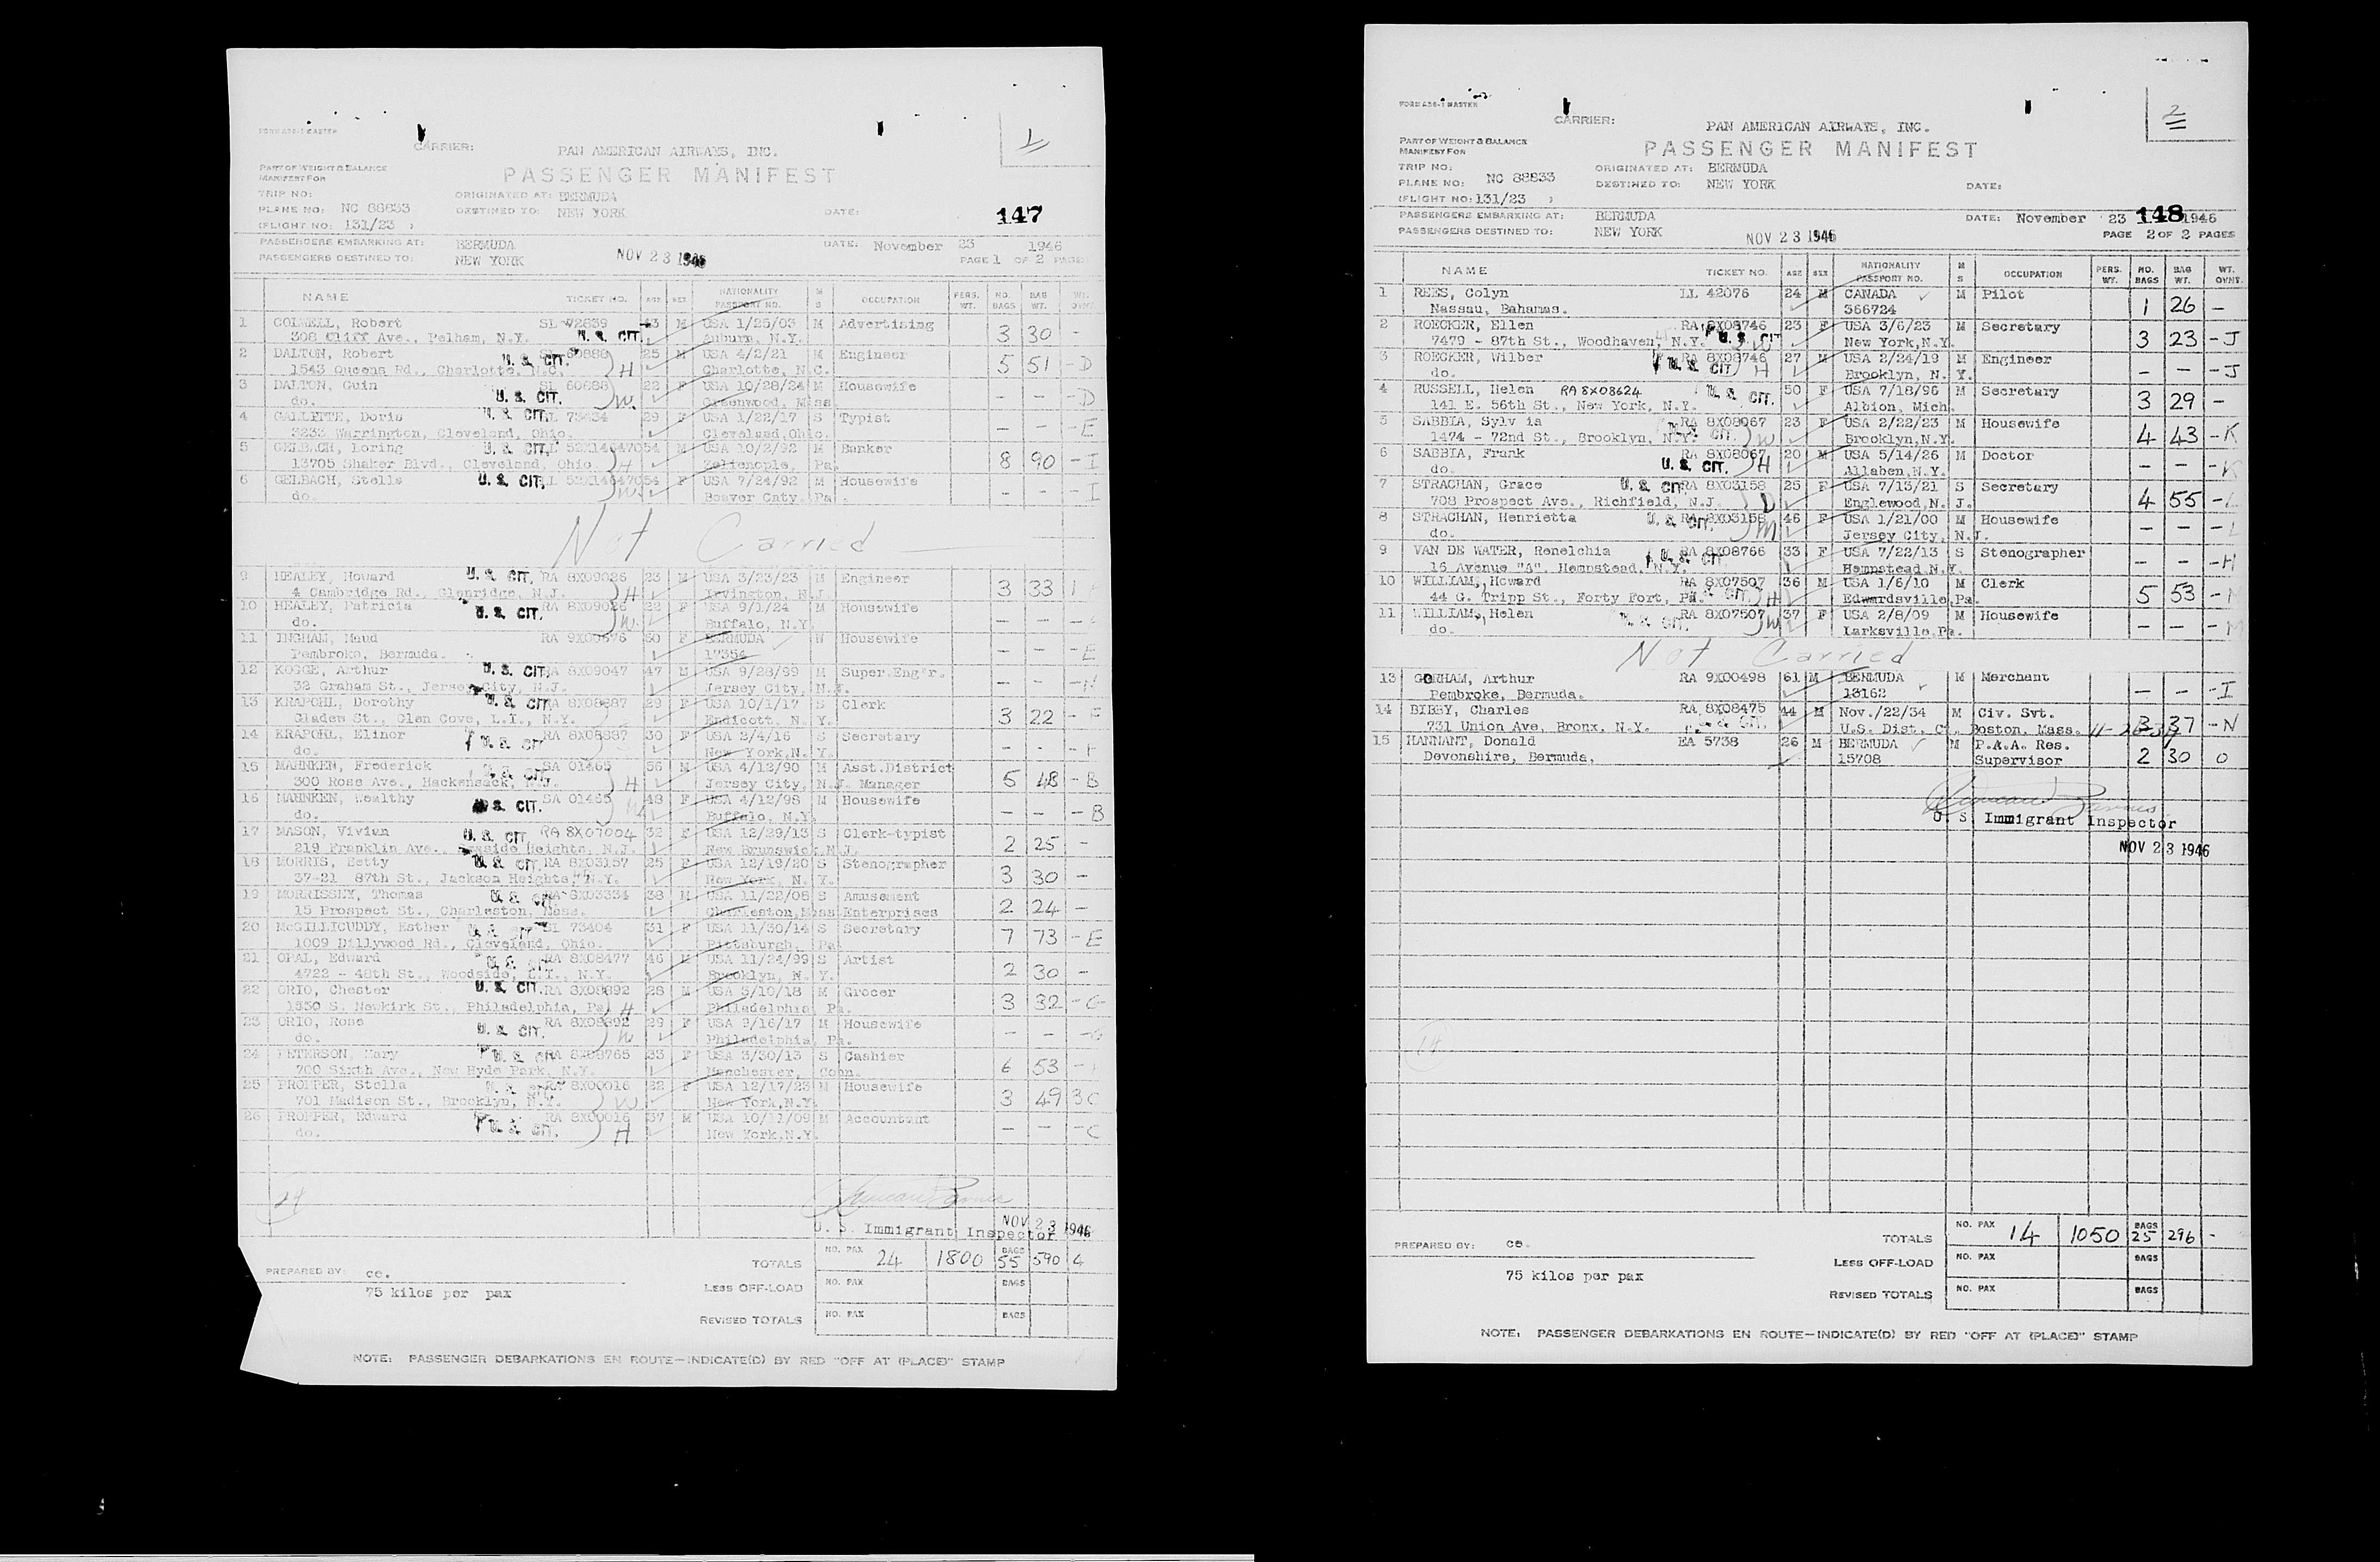 FORM ABS-1 MASTER
CARRIER: PAN AMERICAN AIRWAYS, INC.
PART OF WEIGHT & BALANCE
PASSENGER MANIFEST
MANIFEST FOR
TRIP NO: ORIGINATED AT: BERMUDA
PLANE NO: NC 88833 DESTINED TO: NEW YORK DATE: 147
(FLIGHT NO: 131/23 )
PASSENGERS EMBARKING AT: BERMUDA DATE: November 23 1946
PASSENGERS DESTINED TO: NEW YORK NOV 23 1946 PAGE 1 OF 2 PAGES
NAME TICKET NO. AGE SEX NATIONALITY PASSPORT NO. M S OCCUPATION PERS. WT. NO. BAGS BAG WT. WT. OVHT.
1 COLWELL, Robert SL 72839 43 M USA 1/25/03 M Advertising 3 30 -
308 Cliff Ave., Pelham, N.Y. U. S. CIT. Auburn, N.Y.
2 DALTON, Robert SL 60888 U. S. CIT. 25 M USA 4/2/21 M Engineer 5 51 - D
1543 Queens Rd., Charlotte, N.C. H Charlotte, N.C.
3 DALTON, Guin SL 60688 22 F USA 10/28/24 M Housewife - - - D
do. U. S. CIT. W Greenwood, Miss.
4 GALLETTE, Doris U. S. CIT. SL 73434 29 F USA 1/22/17 S Typist - - - E
3233 Warrington, Cleveland, Ohio. Cleveland, Ohio.
5 GELBACH, Loring U. S. CIT. 52X14647054 M USA 10/2/92 M Banker 8 90 - I
13705 Shaker Blvd., Cleveland, Ohio H Zelienople, Pa.
6 GELBACH, Stella U. S. CIT. 52X14647054 F USA 7/24/92 M Housewife - - - I
do. W Beaver Cnty. Pa.
Not Carried
9 HEALEY, Howard U. S. CIT. RA 8X09026 23 M USA 3/23/23 M Engineer 3 33 1
4 Cambridge Rd., Glenridge, N.J. H Irvington, N.J.
10 HEALEY, Patricia RA 8X09026 22 F USA 9/1/24 M Housewife - -
do. U. S. CIT. W Buffalo, N.Y.
11 INGHAM, Maud RA 9X00676 60 F BERMUDA W Housewife - - - E
Pembroke, Bermuda. 17354
12 KOGGE, Arthur U. S. CIT. RA 8X09047 47 M USA 9/28/99 M Super.Eng'r. - - - H
32 Graham St., Jersey City, N.J. Jersey City, N.J.
13 KRAPOHL, Dorothy U. S. CIT. RA 8X08887 29 F USA 10/1/17 S Clerk 3 22 - F
Glades St., Glen Cove, L.I., N.Y. Endicott, N. Y.
14 KRAPOHL, Elinor U. S. CIT RA 8X08887 30 F USA 2/4/16 S Secretary - - - F
do. New York, N. Y.
15 MAHNKEN, Frederick SA 01465 56 M USA 4/12/90 M Asst.District 5 48 - B
300 Rose Ave., Hackensack, N.J. H Jersey City, N.J. Manager
16 MAHNKEN, Wealthy U. S. CIT. SA 01465 48 F USA 4/12/98 M Housewife - - - B
do. W Buffalo, N.Y.
17 MASON, Vivian U. S. CIT RA 8X07004 32 F USA 12/29/13 S Clerk-typist 2 25 -
219 Franklin Ave., Seaside Heights, N.J. New Brunswick, N.J.
18 MORRIS, Betty U. S. CIT. RA 8X03157 25 F USA 12/19/20 S Stenographer 3 30 -
37-21 87th St., Jackson Heights, N.Y. New York, N. Y.
19 MORRISSEY, Thomas U. S. CIT RA 8X03334 38 M USA 11/22/08 S Amusement 2 24 -
15 Prospect St., Charleston, Mass. Charleston, Mass Enterprises
20 McGILLICUDDY, Esther U. S. CIT SL 73404 31 F USA 11/30/14 S Secretary 7 73 - E
1009 Dillywood Rd., Cleveland, Ohio. Pittsburgh, Pa.
21 OPAL, Edward U. S. CIT RA 8X08477 46 M USA 11/24/99 S Artist 2 30 -
4722 - 48th St., Woodside, L.I., N.Y. Brooklyn, N. Y.
22 ORIO, Chester U. S. CIT. RA 8X08892 28 M USA 5/10/18 M Grocer 3 32 - G
1530 S. Newkirk St., Philadelphia, Pa. H Philadelphia, Pa.
23 ORIO, Rose RA 8X08892 29 F USA 9/16/17 M Housewife - - - G
do. U. S. CIT. W Philadelphia, Pa.
24 PETERSON, Mary U. S. CIT RA 8X08765 33 F USA 3/30/13 S Cashier 6 53 -
700 Sixth Ave., New Hyde Park, N.Y. Manchester, Conn.
25 PROPPER, Stella RA 8X00016 22 F USA 12/17/23 M Housewife 3 49 3 C
701 Madison St., Brooklyn, N.Y. W New York, N.Y.
26 PROPPER, Edward RA 8X00016 37 M USA 10/11/09 M Accountant - - - C
do. U. S. CIT. H New York, N.Y.
24
U. S. Immigrant Inspector NOV 23 1946
TOTALS NO. PAX 24 1800 BAGS 55 590 4
PREPARED BY: ce.
LESS OFF-LOAD NO. PAX BAGS
75 kilos per pax
REVISED TOTALS NO. PAX BAGS
NOTE: PASSENGER DEBARKATIONS EN ROUTE—INDICATE(D) BY RED "OFF AT (PLACE)" STAMP
FORM ABS-1 MASTER 2
CARRIER: PAN AMERICAN AIRWAYS, INC.
PART OF WEIGHT & BALANCE
PASSENGER MANIFEST
MANIFEST FOR
TRIP NO: ORIGINATED AT: BERMUDA
PLANE NO: NC 88833 DESTINED TO: NEW YORK DATE:
(FLIGHT NO: 131/23 )
PASSENGERS EMBARKING AT: BERMUDA DATE: November 23 148 1946
PASSENGERS DESTINED TO: NEW YORK NOV 23 1946 PAGE 2 OF 2 PAGES
NAME TICKET NO. AGE SEX NATIONALITY PASSPORT NO. M S OCCUPATION PERS. WT. NO. BAGS BAG WT. WT. OVHT.
1 REES, Colyn LL 42076 24 M CANADA M Pilot 1 26 -
Nassau, Bahamas. 566724
2 ROECKER, Ellen RA 8X08746 23 F USA 3/6/23 M Secretary 3 23 - J
7479 - 87th St., Woodhaven, N.Y. U. S. CIT W New York, N.Y.
3 ROECKER, Wilber RA 8X08746 27 M USA 2/24/19 M Engineer - - - J
do. U. S. CIT H Brooklyn, N. Y.
4 RUSSELL, Helen RA 8X08624 U. S. CIT. 50 F USA 7/18/96 M Secretary 3 29 -
141 E. 56th St., New York, N.Y. Albion, Mich.
5 SABBIA, Sylv ia RA 8X08067 23 F USA 2/22/23 M Housewife 4 43 - K
1474 - 72nd St., Brooklyn, N.Y. CIT. W Brooklyn, N.Y.
6 SABBIA, Frank RA 8X08067 20 M USA 5/14/26 M Doctor - - - K
do. U. S. CIT. H Allaben, N.Y.
7 STRACHAN, Grace U. S. CIT. RA 8X03158 25 F USA 7/13/21 S Secretary 4 55 - L
708 Prospect Ave., Richfield, N.J. D Englewood, N. J.
8 STRACHAN, Henrietta U. S. CIT. RA 8X03158 46 F USA 1/21/00 M Housewife - - - L
do. M Jersey City, N.J.
9 VAN DE WATER, Renelchia U. S. CIT. RA 8X08766 33 F USA 7/22/13 S Stenographer - - - H
16 Avenue "A", Hempstead, N.Y. Hempstead N.Y.
10 WILLIAMS, Howard RA 8X07507 36 M USA 1/6/10 M Clerk 5 53 - M
44 G. Tripp St., Forty Fort, Pa. CIT. H Edwardsville, Pa.
11 WILLIAMS, Helen RA 8X07507 37 F USA 2/8/09 M Housewife - - - M
do. U. S. CIT. W Larksville, Pa.
Not Carried
13 GORHAM, Arthur RA 9X00498 61 M BERMUDA M Merchant - - - I
Pembroke, Bermuda. 13162
14 BIBBY, Charles RA 8X08475 44 M Nov./22/34 M Civ. Svt. 3 37 - N
731 Union Ave, Bronx, N.Y. CIT. U.S. Dist. Ct. Boston, Mass.
15 HANNANT, Donald EA 5738 26 M BERMUDA M P.A.A. Res. 2 30 0
Devonshire, Bermuda. 15708 Supervisor
U. S. Immigrant Inspector
NOV 23 1946
14
TOTALS NO. PAX 14 1050 BAGS 25 296 -
PREPARED BY: ce.
LESS OFF-LOAD NO. PAX BAGS
75 kilos per pax
REVISED TOTALS NO. PAX BAGS
NOTE: PASSENGER DEBARKATIONS EN ROUTE—INDICATE(D) BY RED "OFF AT (PLACE)" STAMP